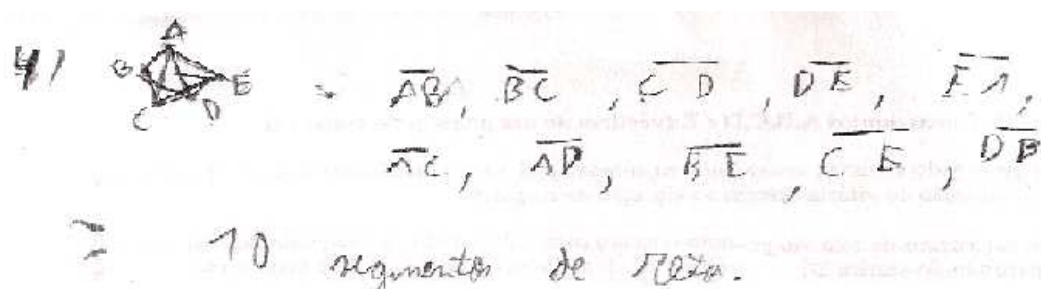 4)
A
B
E
C D
AB, BC, CD, DE, EA,
AC, AD, BE, CE, DB
10 segmentos de reta.